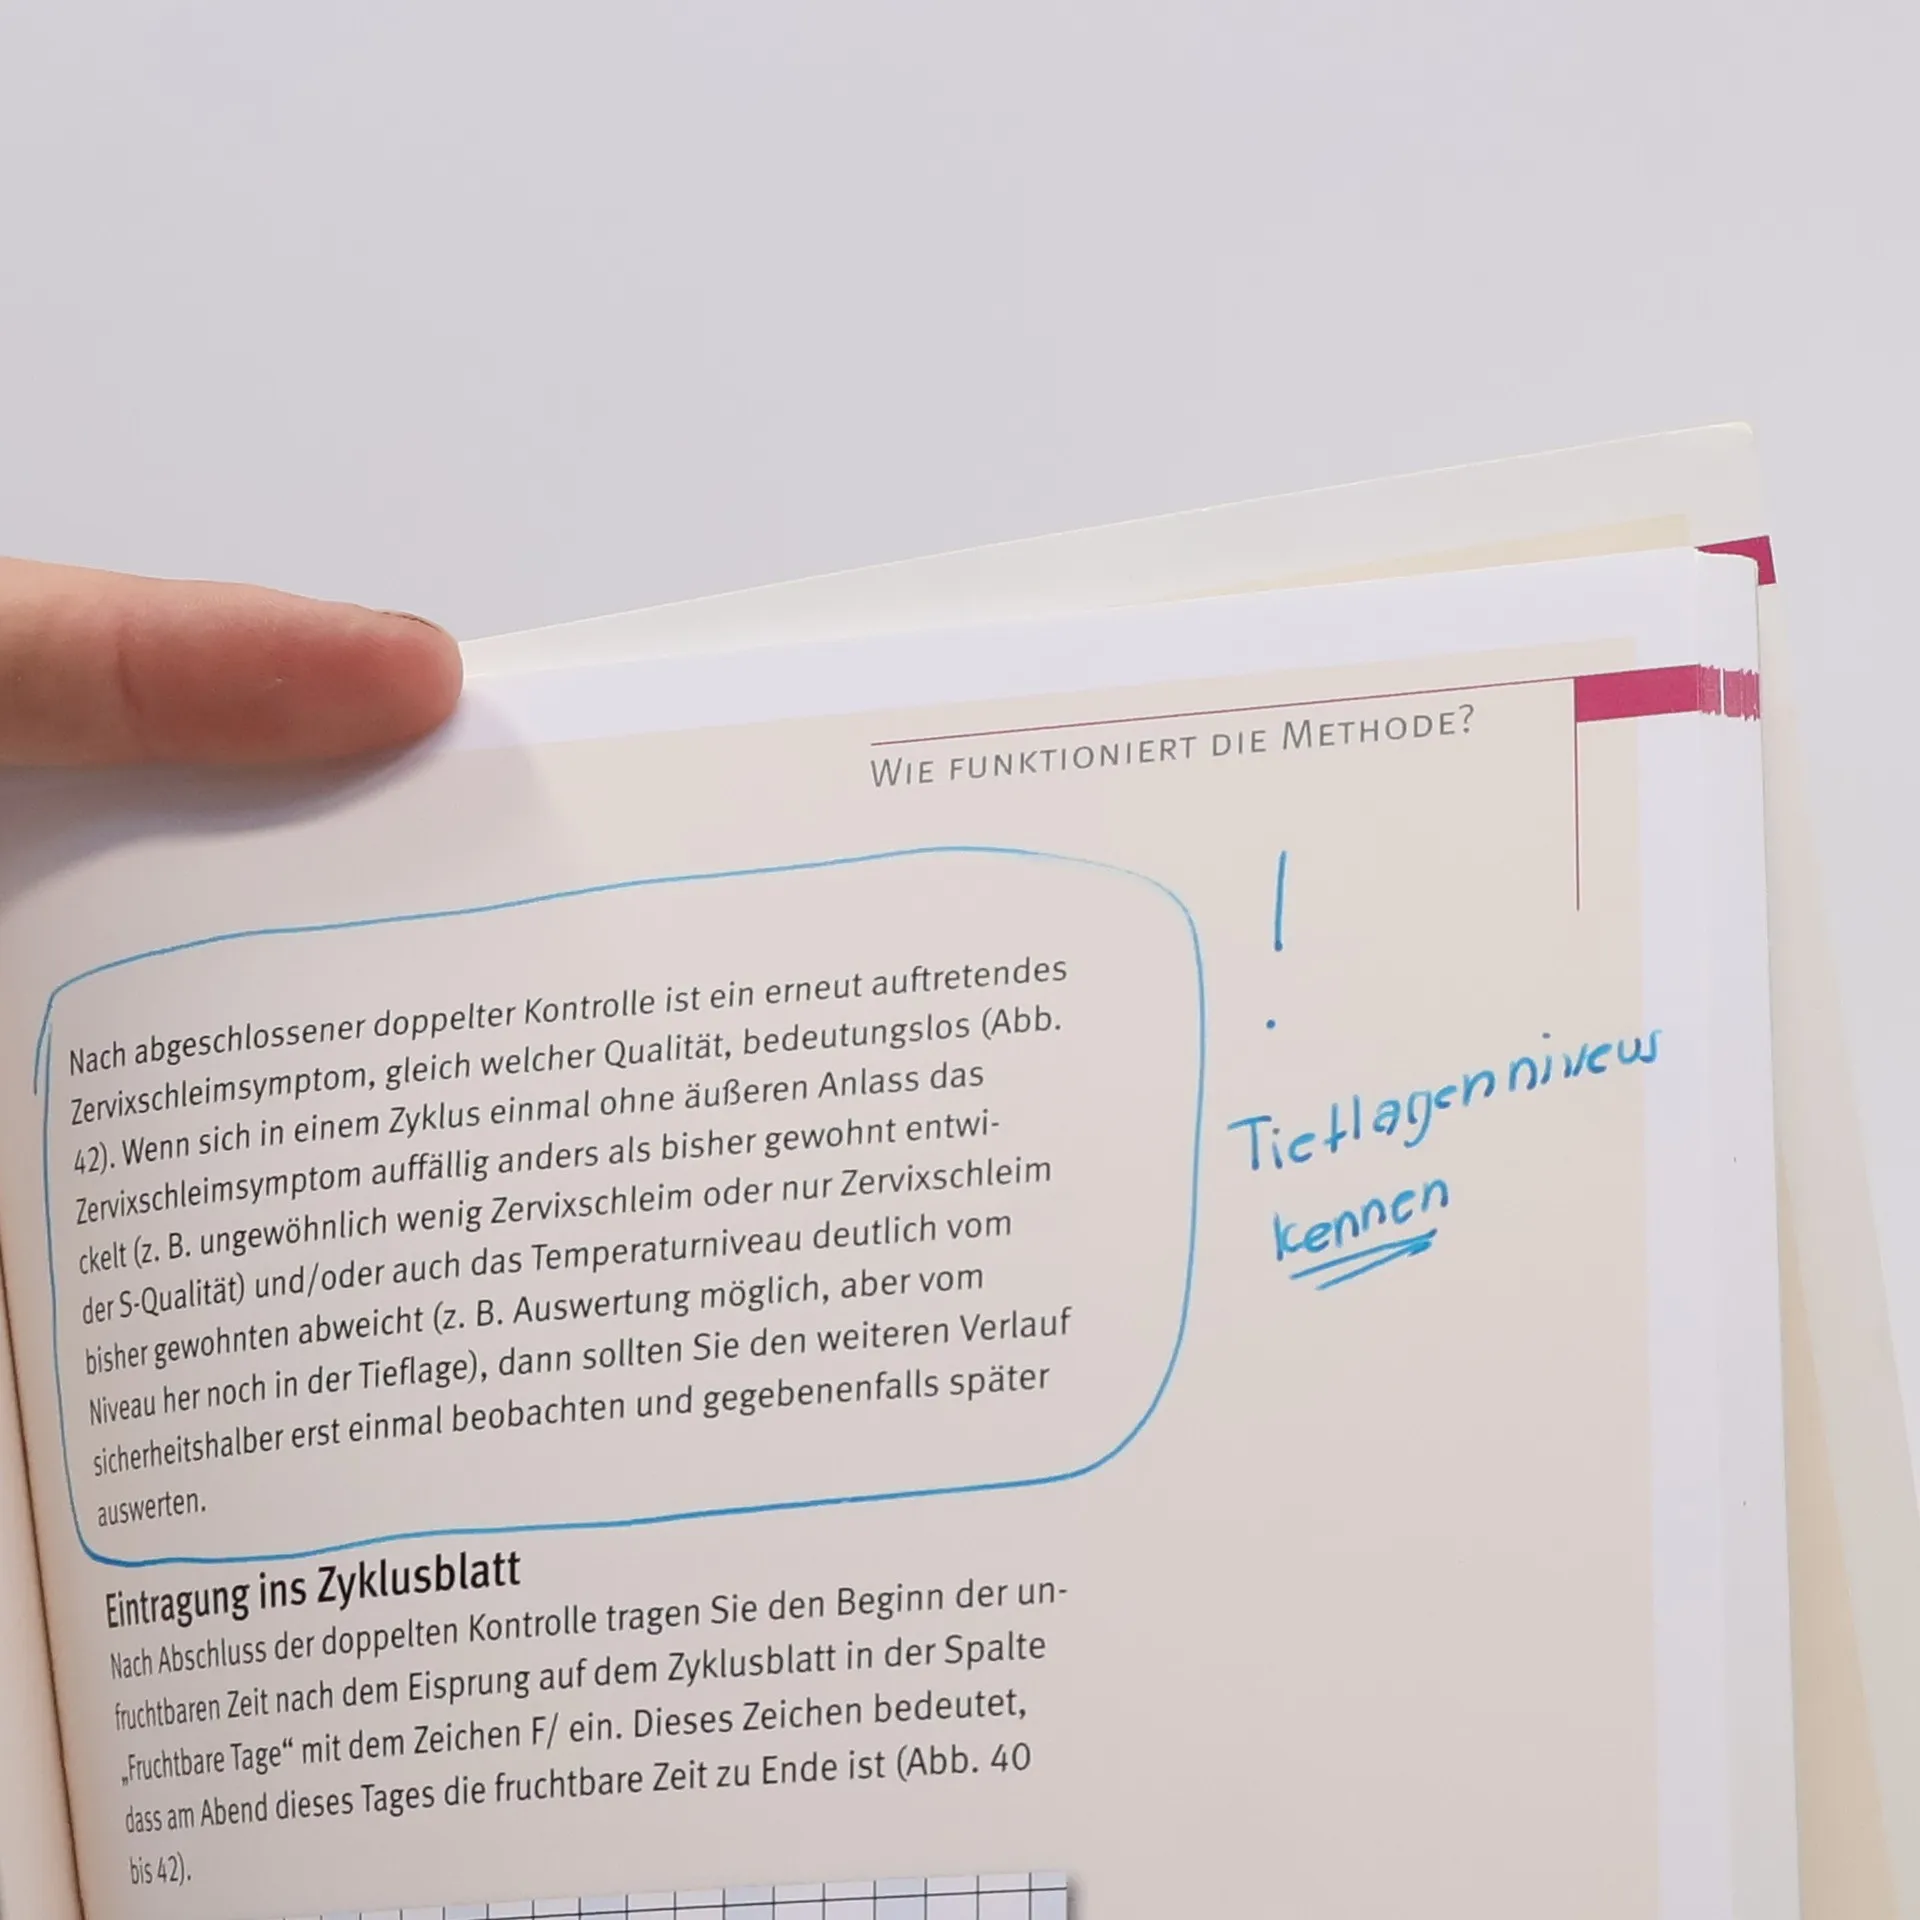 WIE FUNKTIONIERT DIE METHODE?
Nach abgeschlossener doppelter Kontrolle ist ein erneut auftretendes
Zervixschleimsymptom, gleich welcher Qualität, bedeutungslos (Abb.
42). Wenn sich in einem Zyklus einmal ohne äußeren Anlass das
Zervixschleimsymptom auffällig anders als bisher gewohnt entwi-
ckelt (z. B. ungewöhnlich wenig Zervixschleim oder nur Zervixschleim
der S-Qualität) und/oder auch das Temperaturniveau deutlich vom
bisher gewohnten abweicht (z. B. Auswertung möglich, aber vom
Niveau her noch in der Tieflage), dann sollten Sie den weiteren Verlauf
sicherheitshalber erst einmal beobachten und gegebenenfalls später
auswerten.
!
Tieflagenniveus
kennen
Eintragung ins Zyklusblatt
Nach Abschluss der doppelten Kontrolle tragen Sie den Beginn der un-
fruchtbaren Zeit nach dem Eisprung auf dem Zyklusblatt in der Spalte
„Fruchtbare Tage“ mit dem Zeichen F/ ein. Dieses Zeichen bedeutet,
dass am Abend dieses Tages die fruchtbare Zeit zu Ende ist (Abb. 40
bis 42).